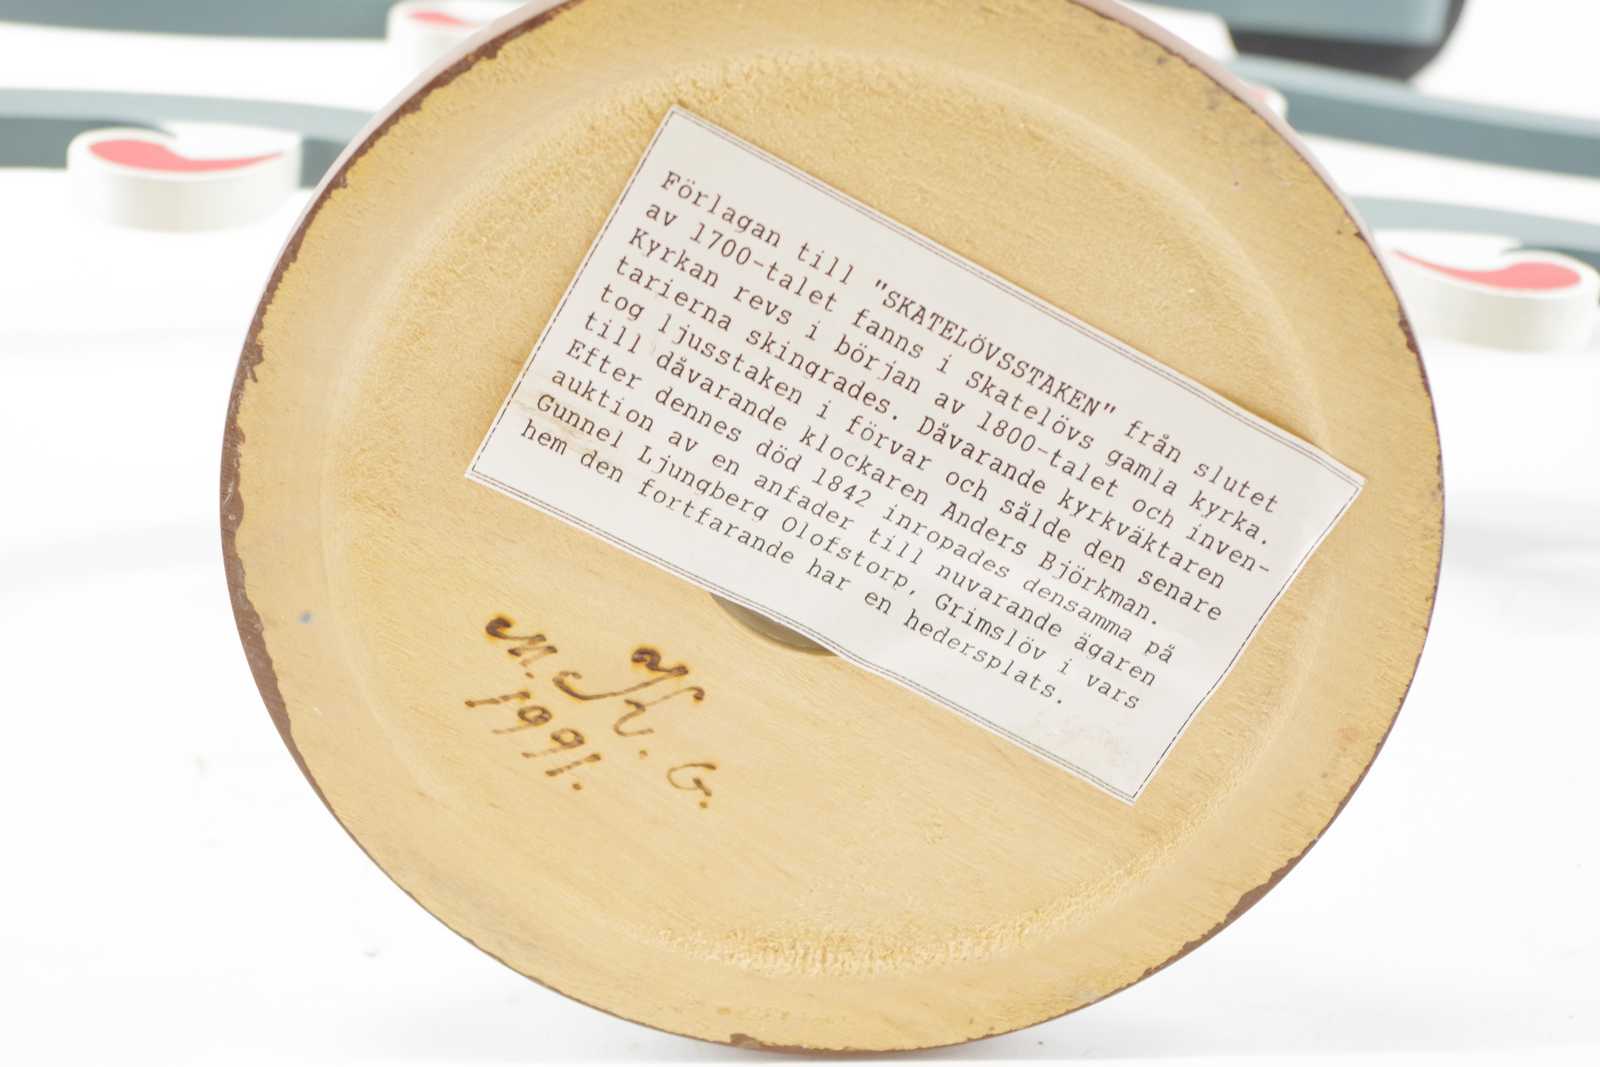 Förlagan till "SKATELÖVSSTAKEN" från slutet
av 1700-talet fanns i Skatelövs gamla kyrka.
Kyrkan revs i början av 1800-talet och inven-
tarierna skingrades. Dåvarande kyrkväktaren
tog ljusstaken i förvar och sålde den senare
till dåvarande klockaren Anders Björkman.
Efter dennes död 1842 inropades densamma på
auktion av en anfader till nuvarande ägaren
Gunnel Ljungberg Olofstorp, Grimslöv i vars
hem den fortfarande har en hedersplats.
M. K. G.
1991.